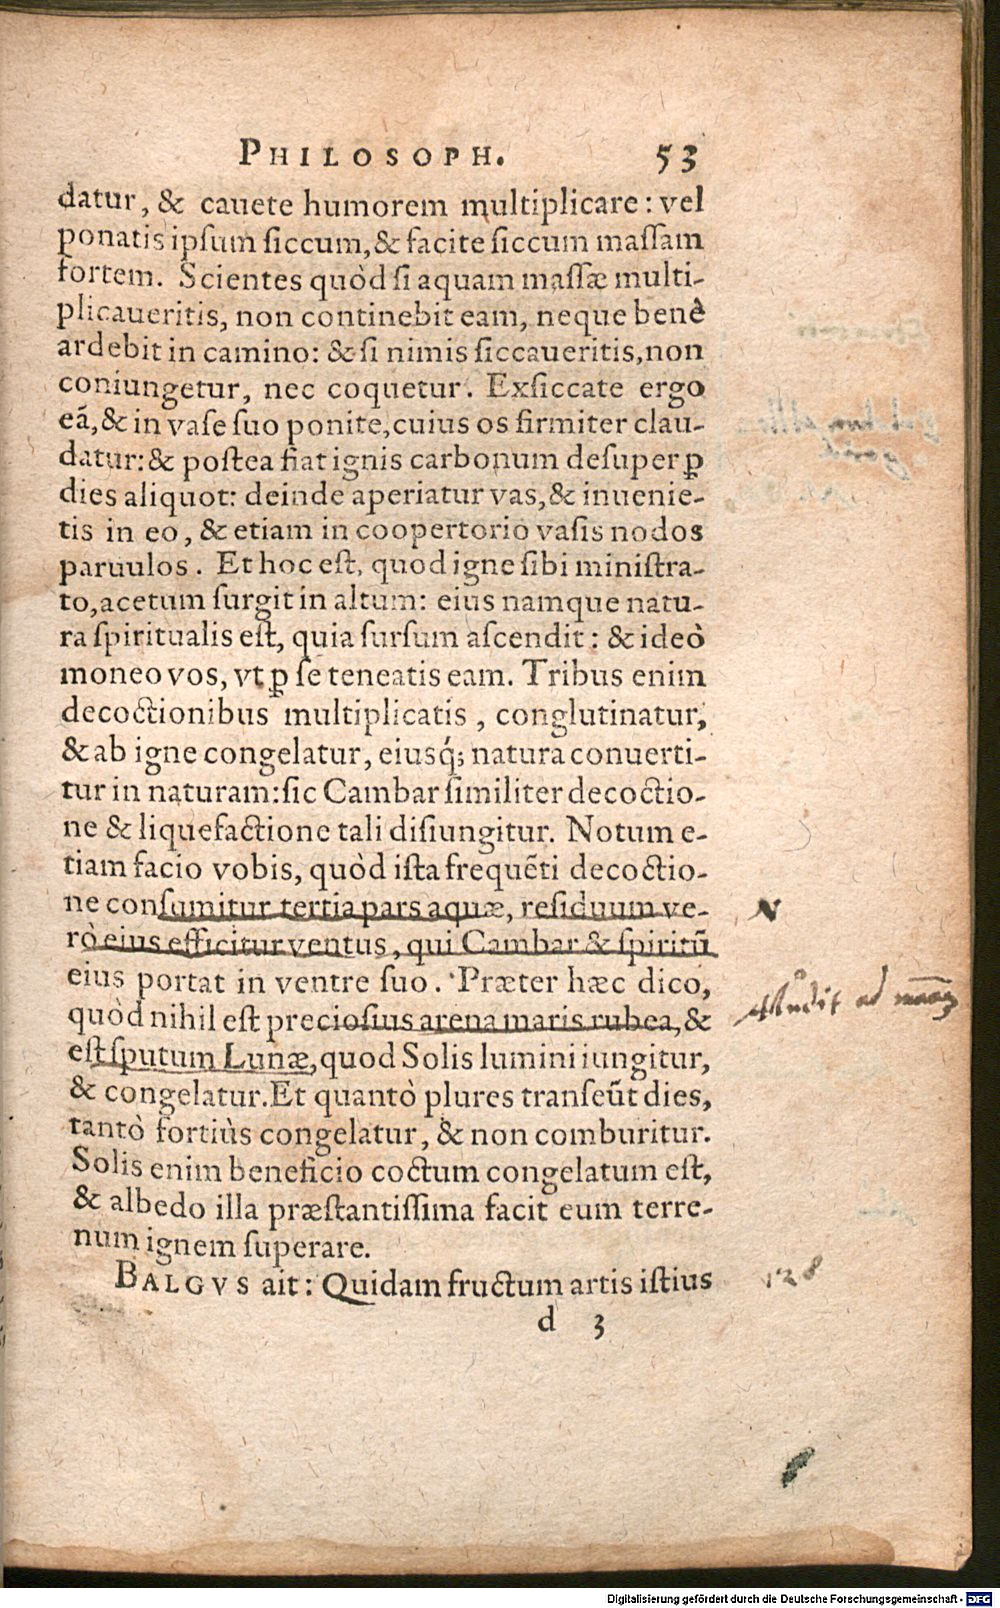 PHILOSOPH. 53
datur, & cauete humorem multiplicare: vel
ponatis ipſum ſiccum, & facite ſiccum maſſam
fortem. Scientes quòd ſi aquam maſſæ multi-
plicaueritis, non continebit eam, neque benè
ardebit in camino: & ſi nimis ſiccaueritis, non
coniungetur, nec coquetur. Exſiccate ergo
eã, & in vaſe ſuo ponite, cuius os firmiter clau-
datur: & poſtea fiat ignis carbonum deſuper ꝑ
dies aliquot: deinde aperiatur vas, & inuenie-
tis in eo, & etiam in coopertorio vaſis nodos
paruulos. Et hoc eſt, quod igne ſibi miniſtra-
to, acetum ſurgit in altum: eius namque natu-
ra ſpiritualis eſt, quia ſurſum aſcendit: & ideò
moneo vos, vt ꝑ ſe teneatis eam. Tribus enim
decoctionibus multiplicatis, conglutinatur,
& ab igne congelatur, eiusq́; natura conuerti-
tur in naturam: ſic Cambar ſimiliter decoctio-
ne & liquefactione tali diſiungitur. Notum e-
tiam facio vobis, quòd iſta frequẽti decoctio-
ne conſumitur tertia pars aquæ, reſiduum ve-
rò eius efficitur ventus, qui Cambar & ſpiritũ
eius portat in ventre ſuo. Præter hæc dico,
quòd nihil eſt precioſius arena maris rubea, &
eſt ſputum Lunæ, quod Solis lumini iungitur,
& congelatur. Et quantò plures tranſeũt dies,
tantò fortiùs congelatur, & non comburitur.
Solis enim beneficio coctum congelatum eſt,
& albedo illa præſtantiſſima facit eum terre-
num ignem ſuperare.
BALGVS ait: Quidam fructum artis iſtius
d 3
N
ad
128
Digitalisierung gefördert durch die Deutsche Forschungsgemeinschaft - DFG